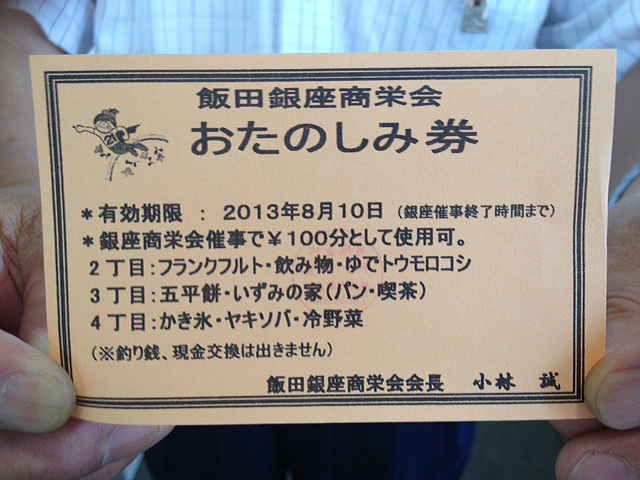 飯田銀座商栄会
おたのしみ券
＊有効期限 ： 2013年8月10日 （銀座催事終了時間まで）
＊銀座商栄会催事で￥100分として使用可。
2丁目：フランクフルト・飲み物・ゆでトウモロコシ
3丁目：五平餅・いずみの家（パン・喫茶）
4丁目：かき氷・ヤキソバ・冷野菜
（※釣り銭、現金交換は出きません）
飯田銀座商栄会会長 小林 誠